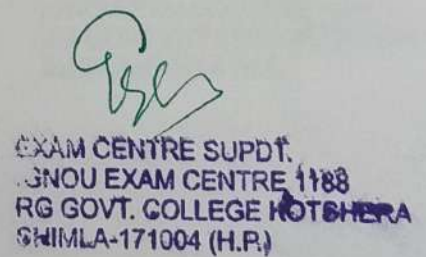 EXAM CENTRE SUPDT.
IGNOU EXAM CENTRE 1188
RG GOVT. COLLEGE KOTSHERA
SHIMLA-171004 (H.P.)